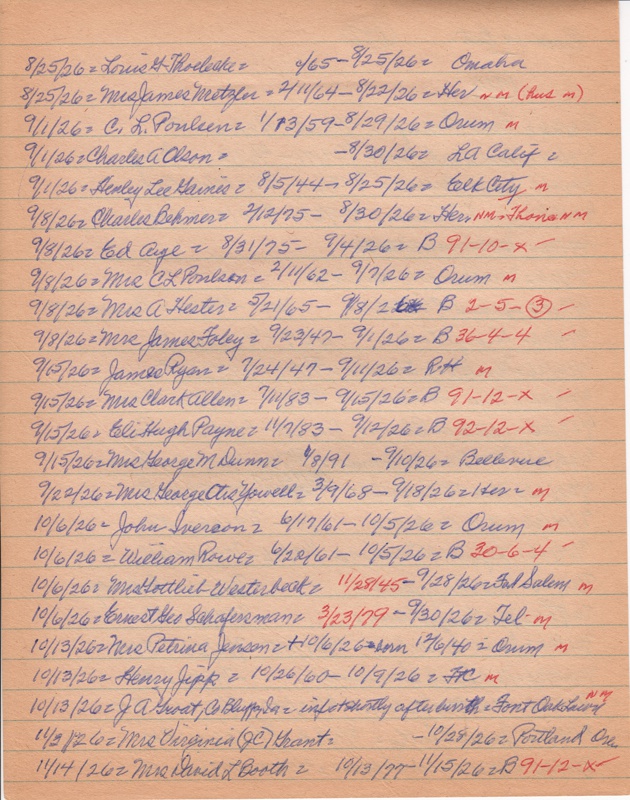 8/25/26 = Louis G Thoelecke = /65 - 8/25/26 = Omaha
8/25/26 = Mrs James Metzler = 2/11/64 - 8/22/26 = Her NM (hus M)
9/1/26 = C. L. Poulsen = 1/13/59 - 8/29/26 = Orum M
9/1/26 = Charles A Olson = - 8/30/26 = LA Calif =
9/1/26 = Henley Lee Gaines = 8/5/44 - 8/25/26 = Elk City M
9/8/26 = Charles Behmer = 2/12/75 - 8/30/26 = Her NM = NM
9/8/26 = Ed Aye = 8/31/75 - 9/4/26 = B 91-10-X
9/8/26 = Mrs C L Poulson = 2/11/62 - 9/7/26 = Orum M
9/8/26 = Mrs A Hester = 5/21/65 - 9/8/26 B 2-5-3
9/8/26 = Mrs James Foley = 9/23/47 - 9/1/26 = B 36-4-4
9/15/26 = James Ryan = 7/24/47 - 9/11/26 = RH M
9/15/26 = Mrs Clark Allen = 7/11/83 - 9/15/26 = B 91-12-X
9/15/26 = Eli Hugh Payne = 11/7/83 - 9/12/26 = B 92-12-X
9/15/26 = Mrs George M Dunn = /8/91 - 9/10/26 = Bellevue
9/22/26 = Mrs George Otis Yowell = 3/9/68 - 9/18/26 = Her = M
10/6/26 = John Iverson = 6/17/61 - 10/5/26 = Orum M
10/6/26 = William Rower = 6/20/61 - 10/5/26 = B 30-6-4
10/6/26 = Mrs Gottlieb Westerbeck = 11/28/45 - 9/28/26 = Ftd Salem M
10/6/26 = Ernest Geo Schafersman = 3/23/79 - 9/30/26 = Tel - M
10/13/26 = Mrs Petrina Jenson = + 10/6/26 = born 12/6/40 = Orum M
10/13/26 = Henry Jipp = 10/26/60 - 10/9/26 = FC M
10/13/26 = J A Groat, Co Bluffs, Ia = infot shortly after birth = Font Oak Lawn NM
11/3/26 = Mrs Virginia (JC) Grant = - 10/28/26 = Portland Ore
11/14/26 = Mrs David L Booth = 10/13/77 - 11/15/26 = B 91-12-X